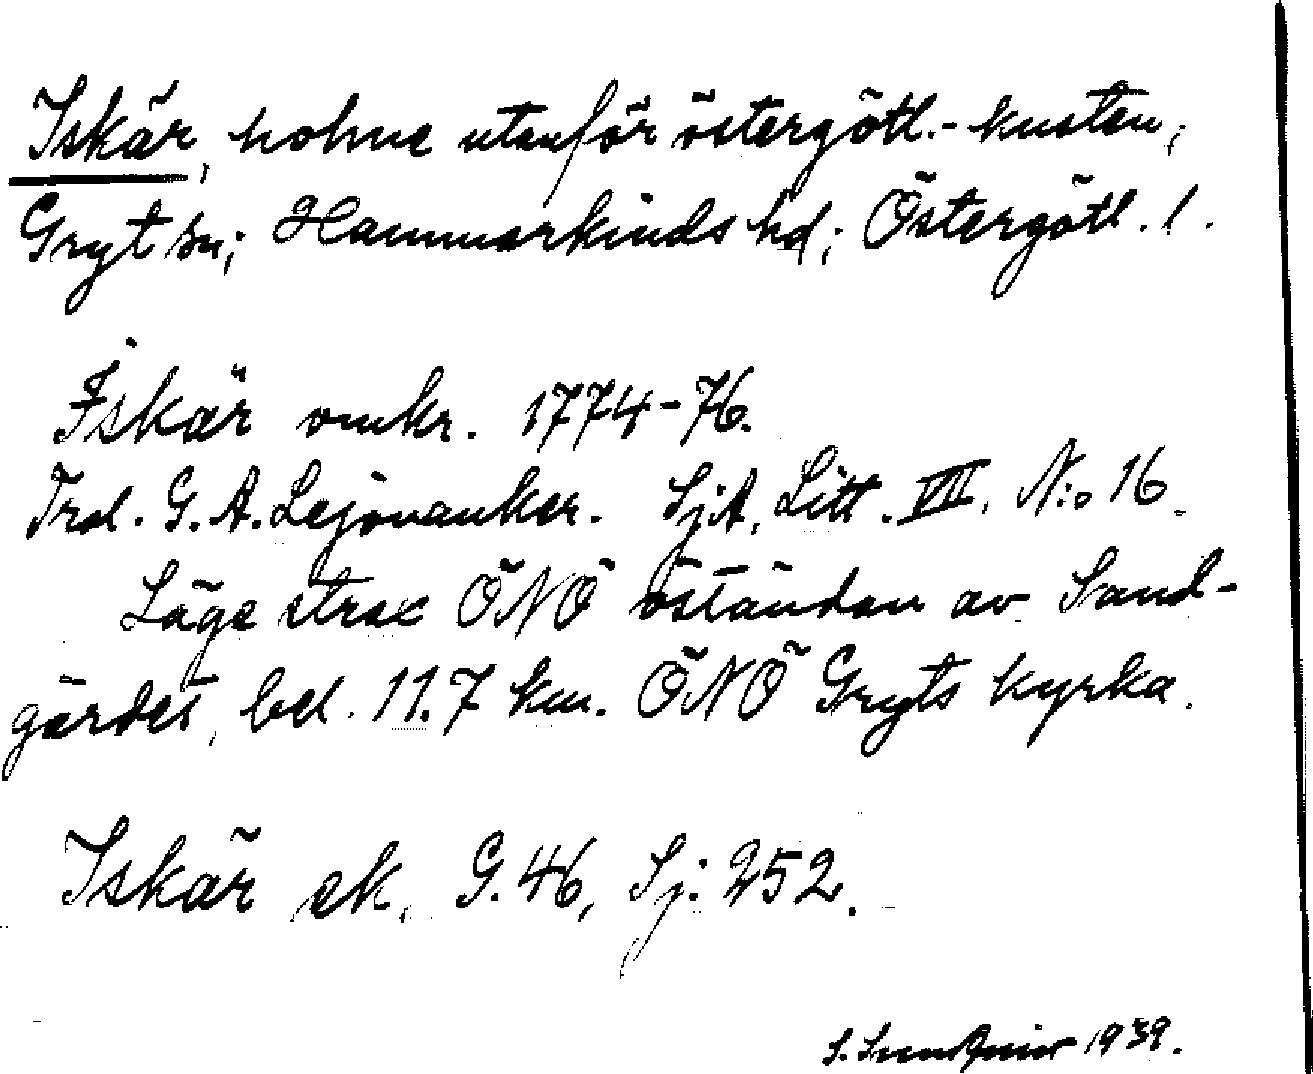 Iskär, holme utanför östergötl.-kusten,
Gryt sn; Hammarkinds hd; Östergötl. l.
Iskär omkr. 1774-76.
Trol. G. A. Lejonanker. SjA, Litt. VIII, N:o 16.
Läge strax ÖNÖ östandan av Sand-
gärdet, bel. 11.7 km. ÖNÖ Gryts kyrka.
Iskär ek. G. 46, Sj: 252.
S. 1939.